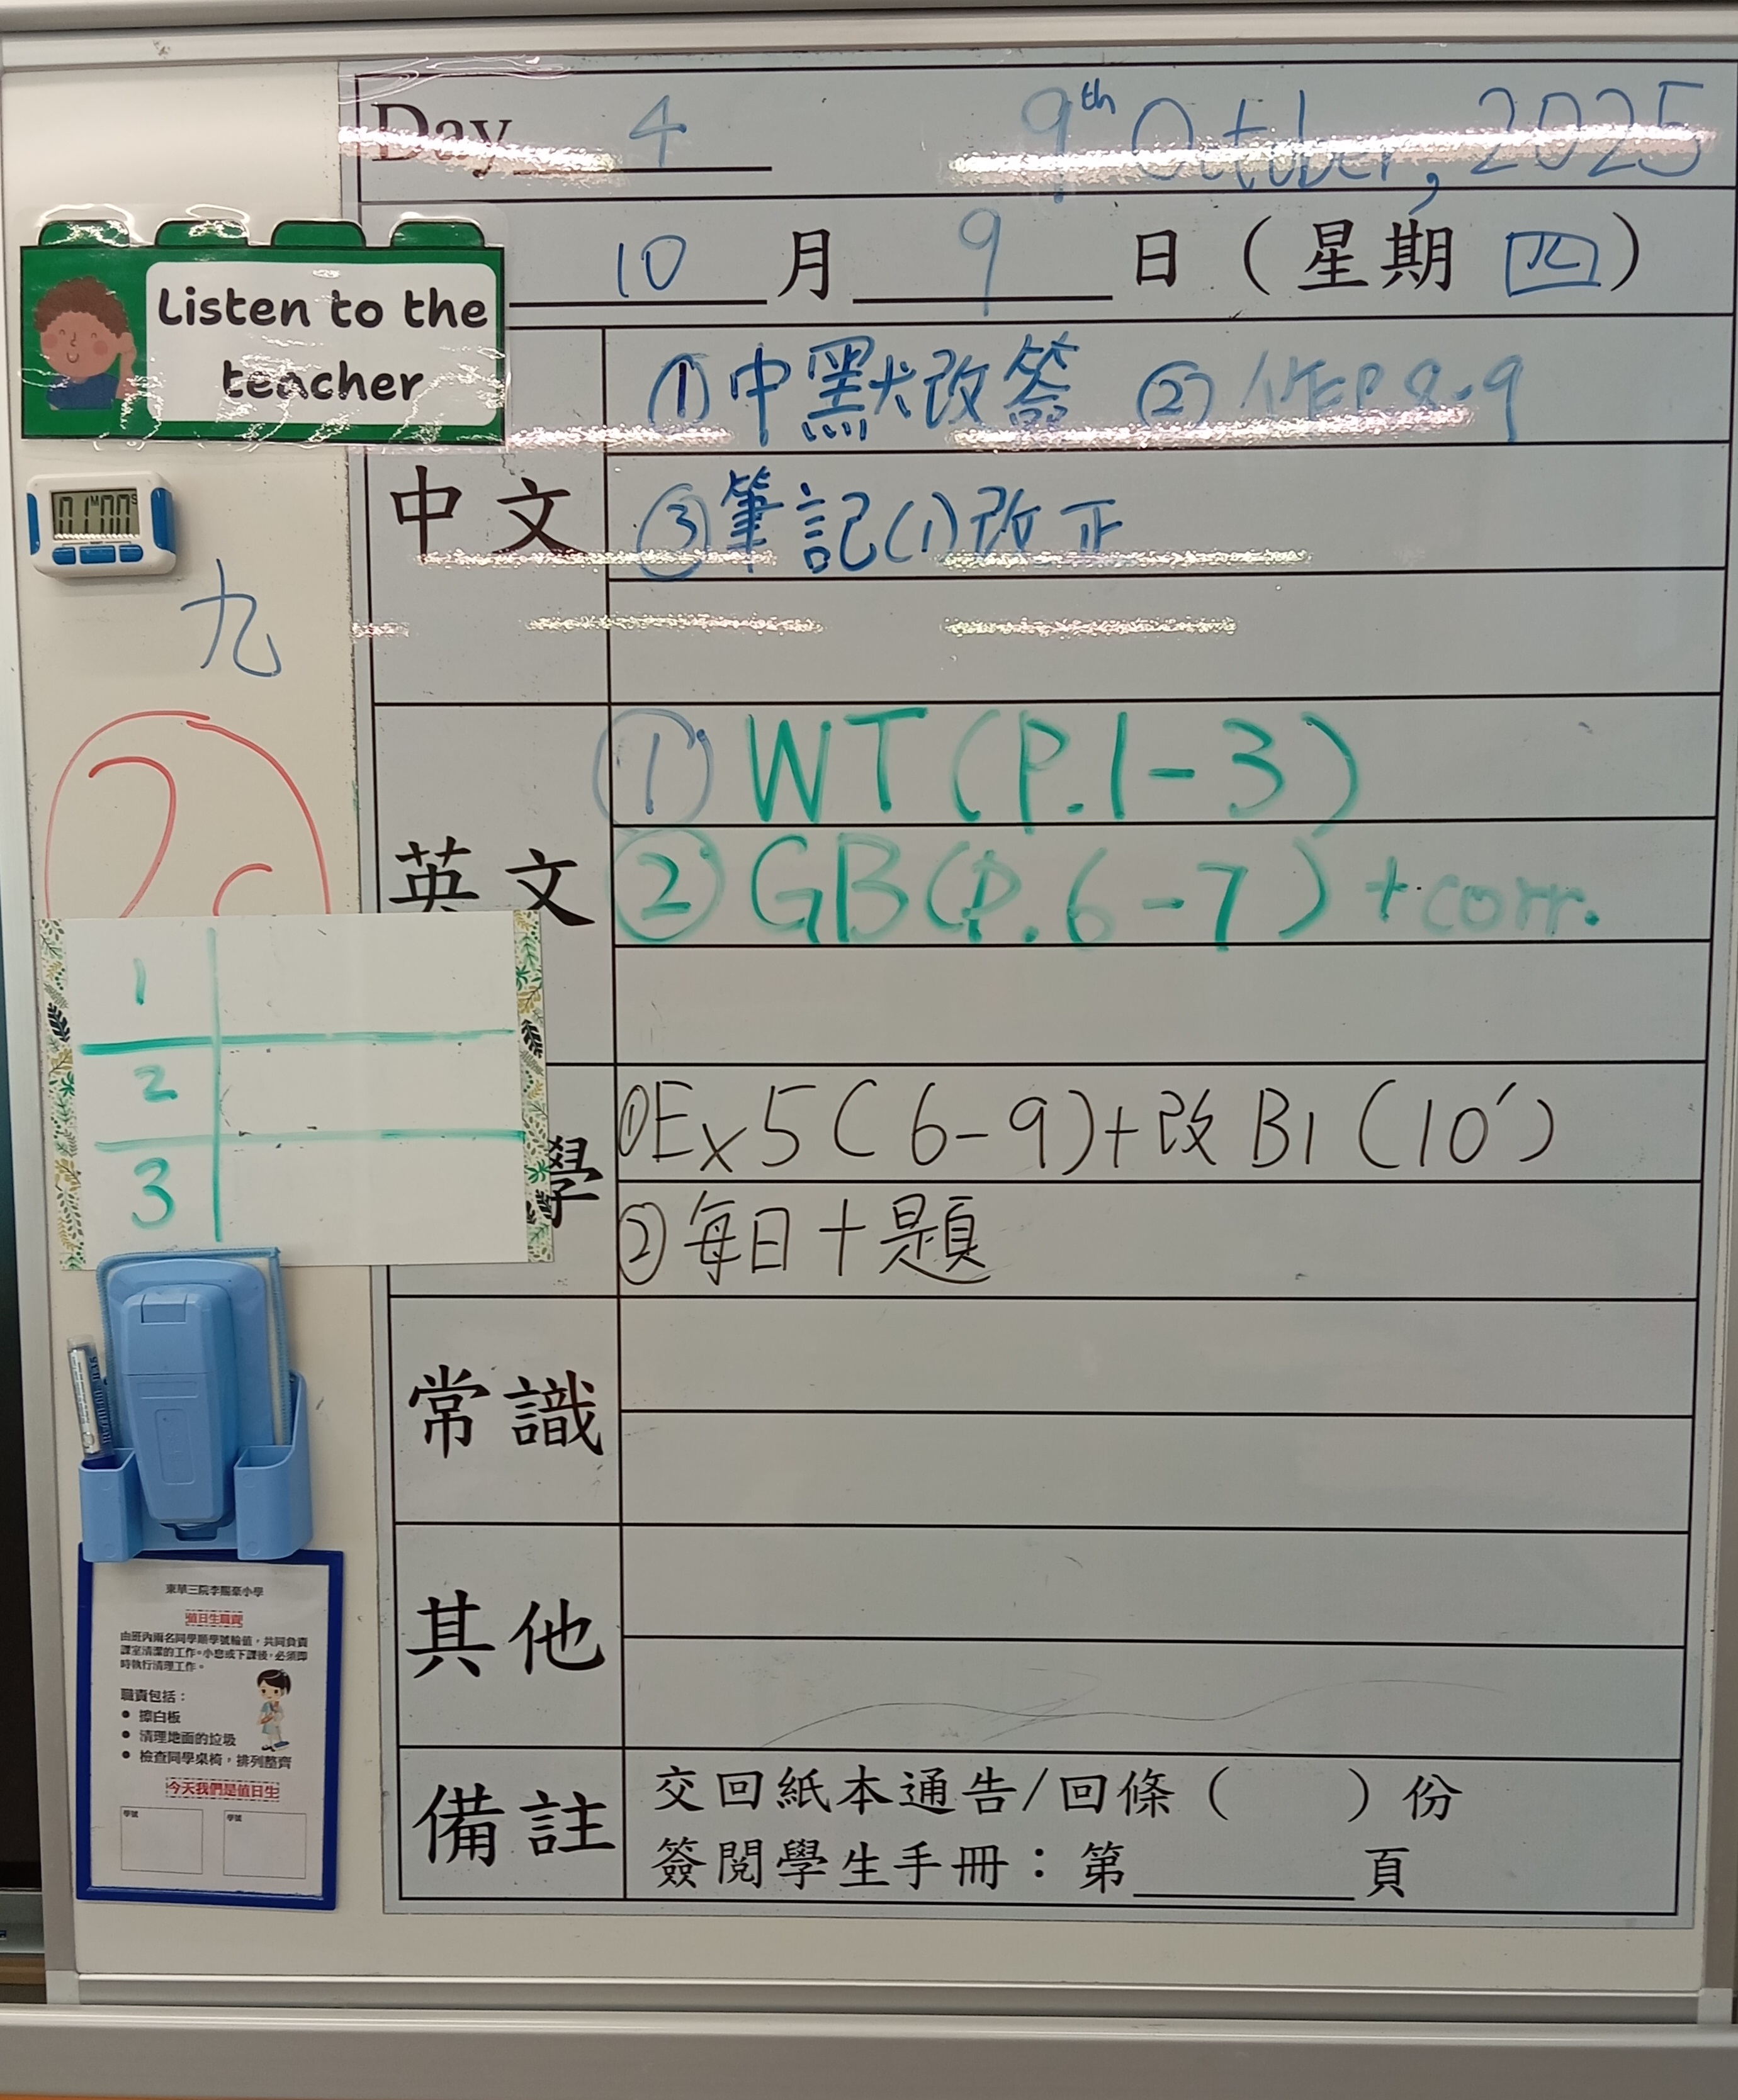 Day 4 9th October, 2025
10 月 9 日 ( 星期 四 )
Listen to the
teacher
中文
①中默改簽 ② P.8-9
③筆記(1)改正
01M00S
九
英文
① WT (P.1-3)
② GB (P.6-7) + corr.
1
2
3
學
①Ex 5 (6-9)+改 B1 (10')
②每日十題
常識
其他
備註
交回紙本通告/回條 ( ) 份
簽閱學生手冊：第 頁
值日生職責
由班內兩名同學順學號輪值，共同負責
課室清潔的工作。小息或下課後，必須即
時執行清理工作。
職責包括：
● 擦白板
● 清理地面的垃圾
● 檢查同學桌椅，排列整齊
今天我們是值日生
學號 學號